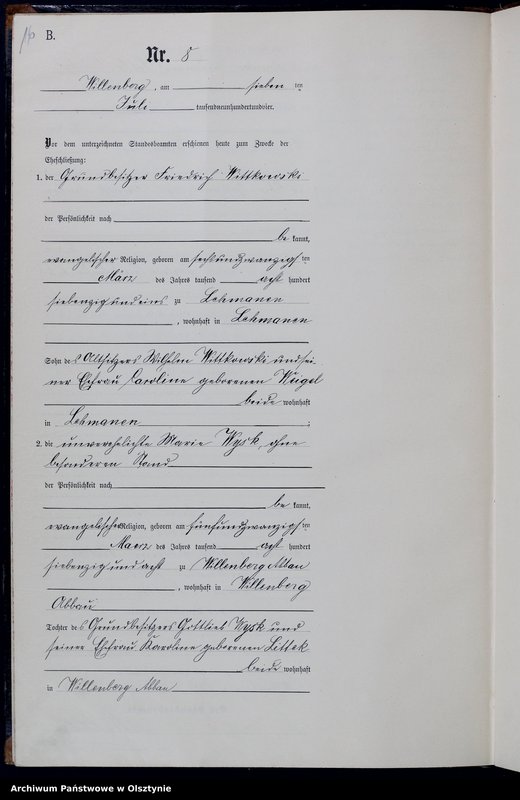 B.
Nr. 8
Willenberg, am sieben ten
Juli tausendneunhundertundvier.
Vor dem unterzeichneten Standesbeamten erschienen heute zum Zwecke der
Eheschließung:
1. der Grundbesitzer Friedrich Wittkowski
der Persönlichkeit nach
be kannt,
evangelischer Religion, geboren am sechsundzwanzigs ten
März des Jahres tausend acht hundert
siebenzig und eins zu Lehmanen
, wohnhaft in Lehmanen
Sohn des Altsitzers Wilhelm Wittkowski und sei
ner Ehefrau Karoline geborenen
beide wohnhaft
in Lehmanen ;
2. die unverehelichte Marie Wysk, ohne
besonderen Stand
der Persönlichkeit nach
be kannt,
evangelischer Religion, geboren am fünfundzwanzigs ten
Maerz des Jahres tausend acht hundert
siebenzig und acht zu Willenberg Abbau
, wohnhaft in Willenberg
Abbau
Tochter des Grundbesitzers Gottlieb Wysk und
seiner Ehefrau Karoline geborenen Lettek
beide wohnhaft
in Willenberg Abbau
Archiwum Państwowe w Olsztynie